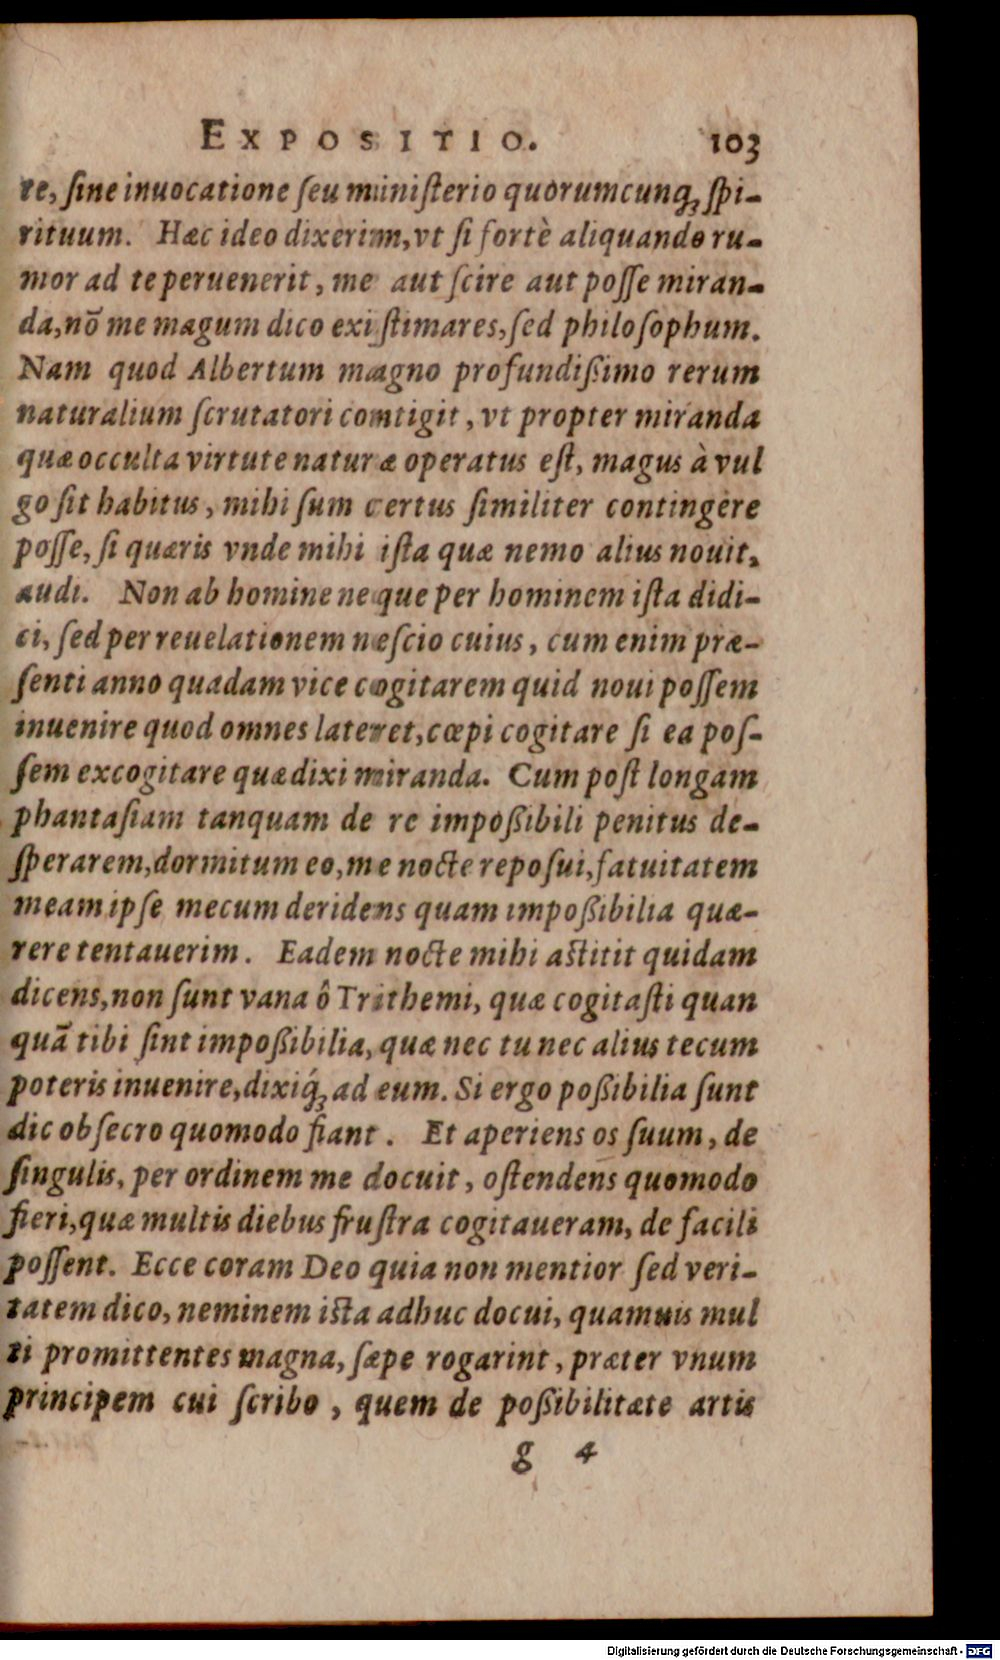 EXPOSITIO. 103
re, ſine inuocatione ſeu miniſterio quorumcunq́; ſpi-
rituum. Hæc ideo dixerim, vt ſi fortè aliquando ru-
mor ad te peruenerit, me aut ſcire aut poſſe miran-
da, nõ me magum dico exiſtimares, ſed philoſophum.
Nam quod Albertum magno profundißimo rerum
naturalium ſcrutatori contigit, vt propter miranda
quæ occulta virtute naturæ operatus eſt, magus à vul
go ſit habitus, mihi ſum certus ſimiliter contingere
poſſe, ſi quæris vnde mihi iſta quæ nemo alius nouit,
audi. Non ab homine neque per hominem iſta didi-
ci, ſed per reuelationem neſcio cuius, cum enim præ-
ſenti anno quadam vice cogitarem quid noui poſſem
inuenire quod omnes lateret, cœpi cogitare ſi ea poſ-
ſem excogitare quæ dixi miranda. Cum poſt longam
phantaſiam tanquam de re impoßibili penitus de-
ſperarem, dormitum eo, me nocte repoſui, fatuitatem
meam ipſe mecum deridens quam impoßibilia quæ-
rere tentauerim. Eadem nocte mihi aſtitit quidam
dicens, non ſunt vana ô Trithemi, quæ cogitaſti quan
quã tibi ſint impoßibilia, quæ nec tu nec alius tecum
poteris inuenire, dixiq́; ad eum. Si ergo poßibilia ſunt
dic obſecro quomodo fiant. Et aperiens os ſuum, de
ſingulis, per ordinem me docuit, oſtendens quomodo
fieri, quæ multis diebus fruſtra cogitaueram, de facili
poſſent. Ecce coram Deo quia non mentior ſed veri-
tatem dico, neminem iſta adhuc docui, quamuis mul
ti promittentes magna, ſæpe rogarint, præter vnum
principem cui ſcribo, quem de poßibilitate artis
g 4
Digitalisierung gefördert durch die Deutsche Forschungsgemeinschaft - DFG